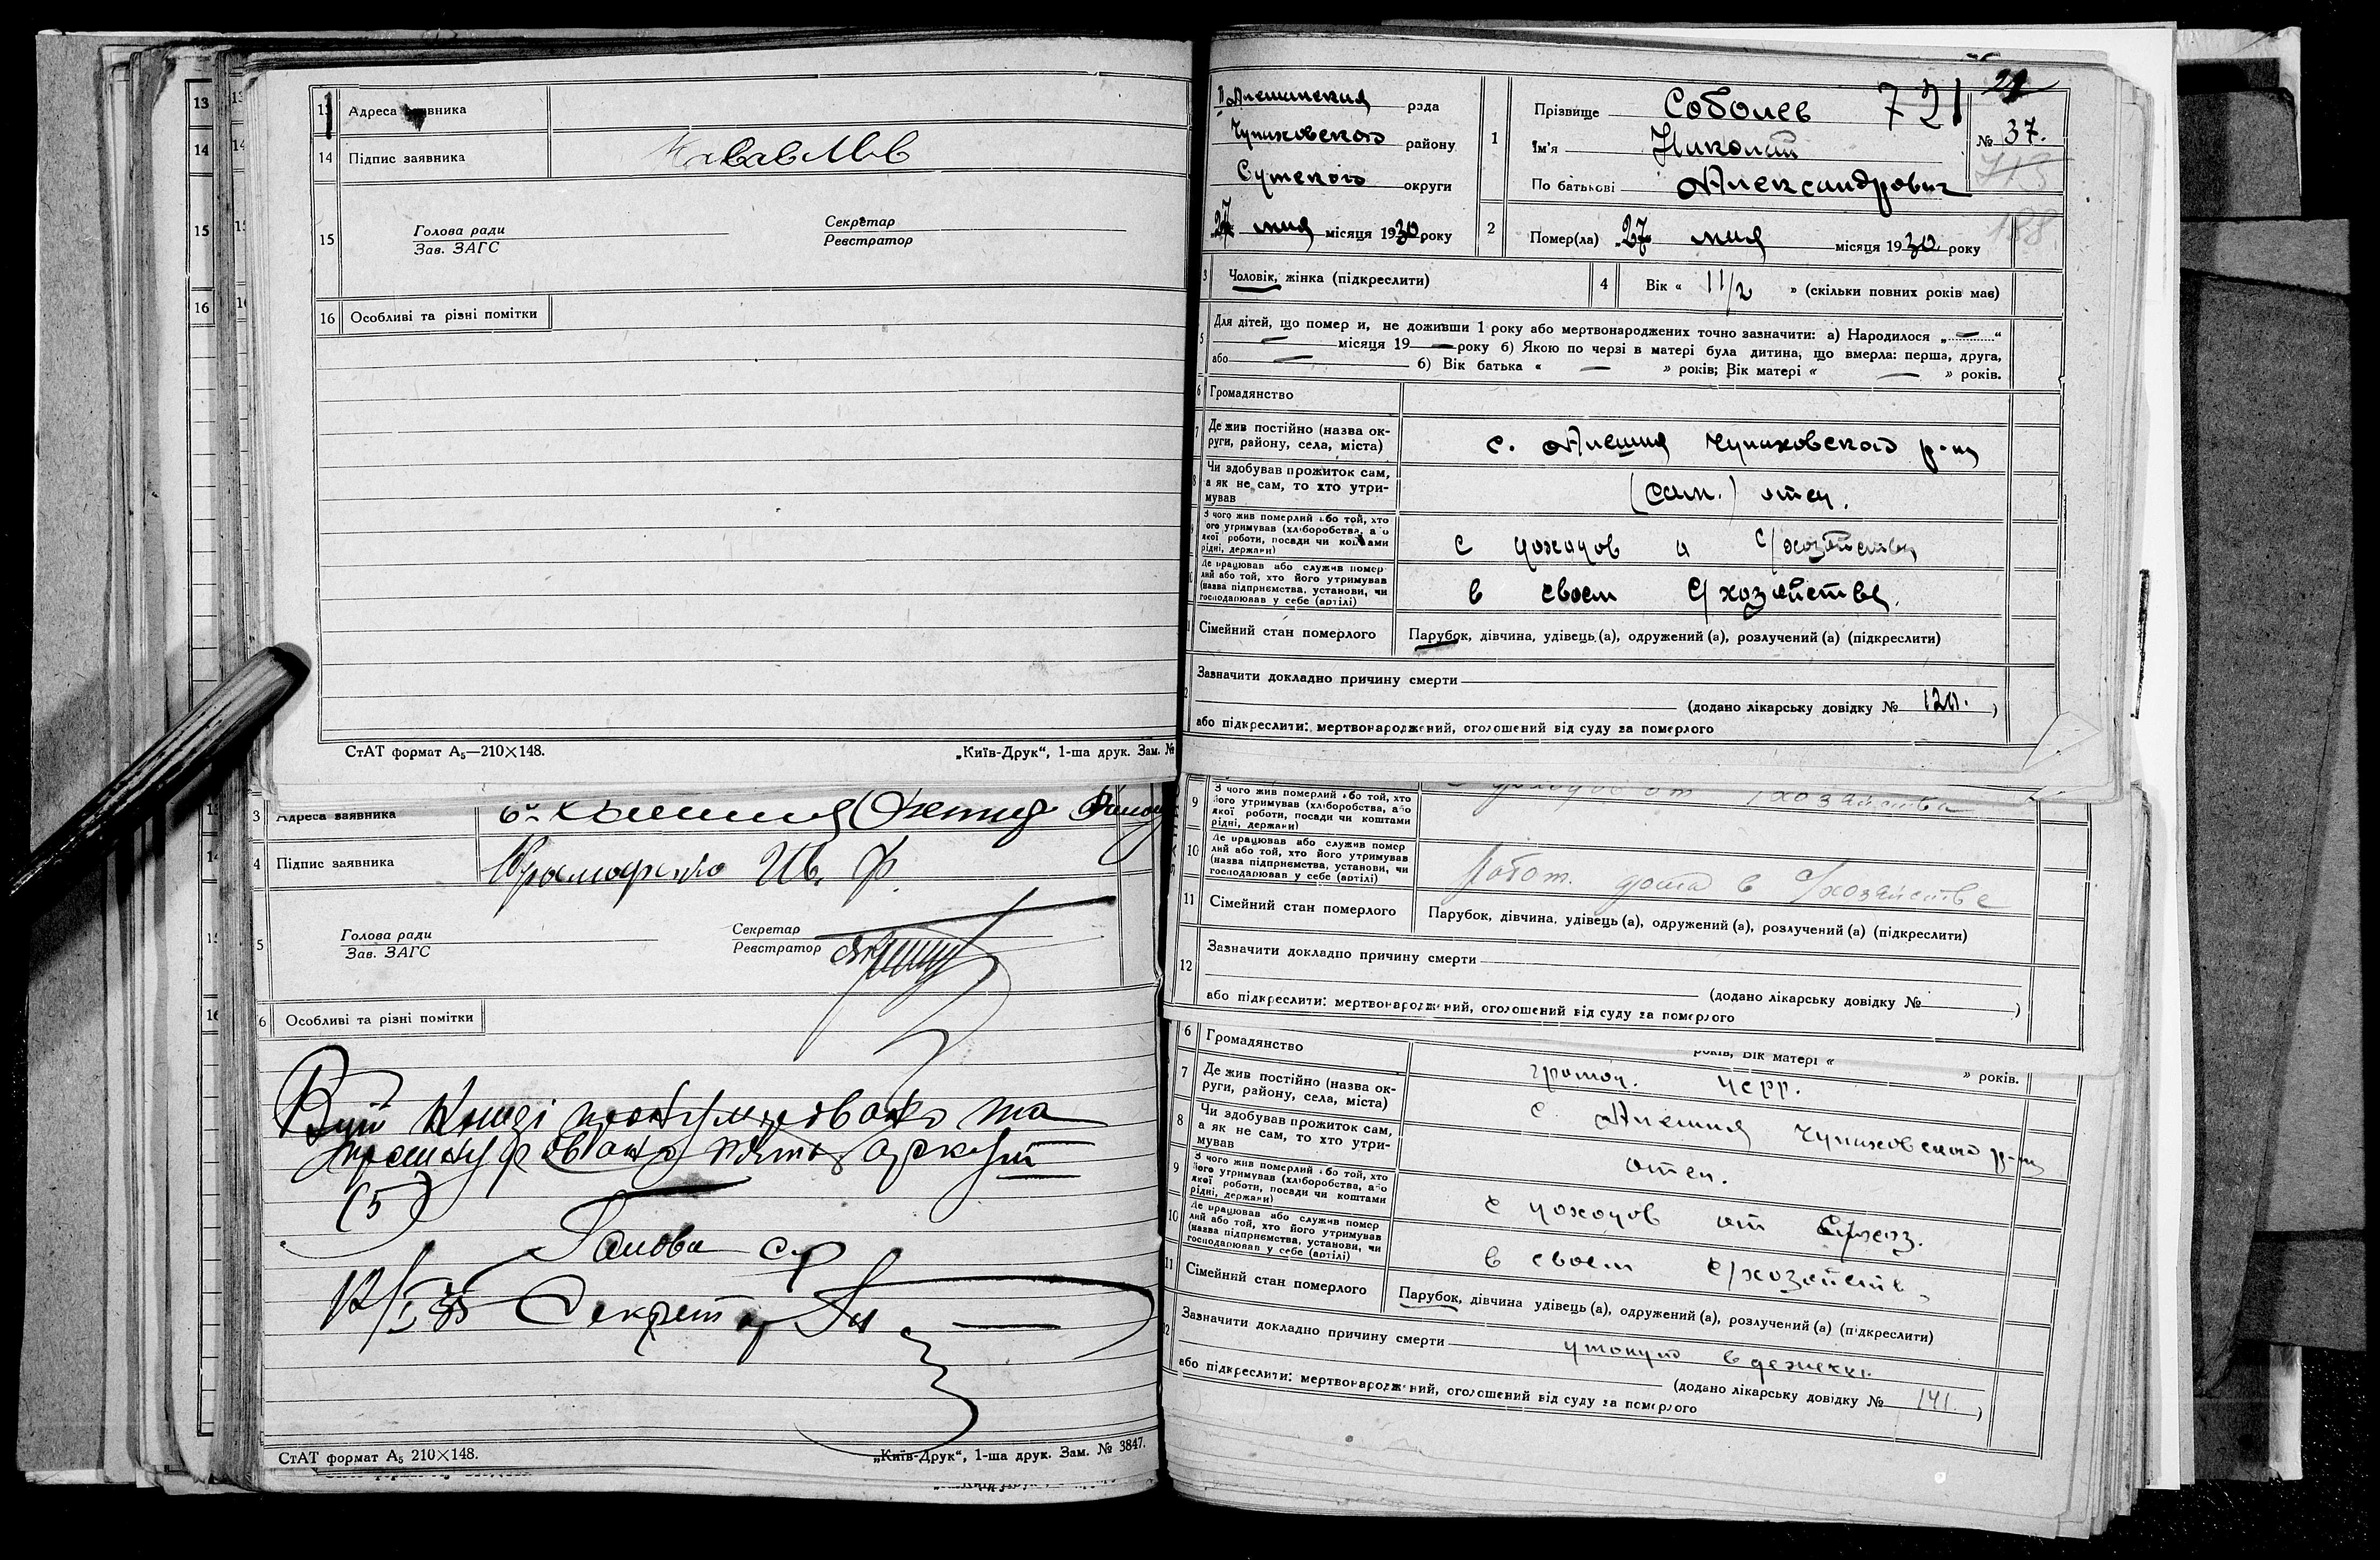 13 Адреса заявника
14 Підпис заявника
15 Голова ради
Зав. ЗАГС
Секретар
Реєстратор
16 Особливі та різні помітки
СтАТ формат А₅—210×148.
„Київ-Друк“, 1-ша друк. Зам. №
3 Адреса заявника
4 Підпис заявника Ив. Ф.
5 Голова ради
Зав. ЗАГС
Секретар
Реєстратор
6 Особливі та різні помітки
Книзі та
аркуш
(5)
Голова с/р
Секретар
СтАТ формат А₅ 210×148.
„Київ-Друк“, 1-ша друк. Зам. № 3847.
Алешинская рада
Чупаховского району
Сумского округи
27 мая місяця 1930 року
1 Прізвище Соболев 721
Ім'я Николай
По батькові Александрович
№ 37.
188
2 Помер(ла) „27“ мая місяця 1930 року
3 Чоловік, жінка (підкреслити)
4 Вік « 1 1/2 » (скільки повних років має)
5 Для дітей, що помер и, не доживши 1 року або мертвонароджених точно зазначити: а) Народилося „—“
— місяця 19— року б) Якою по черзі в матері була дитина, що вмерла: перша, друга,
або — б) Вік батька « — » років; Вік матері « — » років.
6 Громадянство
7 Де жив постійно (назва ок-
руги, району, села, міста)
с. Алешня Чупаховского р-на
8 Чи здобував прожиток сам,
а як не сам, то хто утри-
мував
(сам.) отец.
З чого жив померлий або той, хто
його утримував (хліборобства, або
якої роботи, посади чи коштами
рідні, держави)
с доходов с/хозяйства
Де працював або служив помер
лий або той, хто його утримував
(назва підприємства, установи, чи
господарював у себе (артілі)
в своем с/хозяйстве.
Сімейний стан померлого
Парубок, дівчина, удівець (а), одружений (а), розлучений (а) (підкреслити)
Зазначити докладно причину смерти
(додано лікарську довідку № )
або підкреслити: мертвонароджений, оголошений від суду за померлого
9 З чого жив померлий або той, хто
його утримував (хліборобства, або
якої роботи, посади чи коштами
рідні, держави)
с доходов от с/хозяйства
10 Де працював або служив помер
лий або той, хто його утримував
(назва підприємства, установи, чи
господарював у себе (артілі)
Работ. дома в с/хозяйстве
11 Сімейний стан померлого
Парубок, дівчина, удівець (а), одружений (а), розлучений (а) (підкреслити)
12 Зазначити докладно причину смерти
(додано лікарську довідку № )
або підкреслити: мертвонароджений, оголошений від суду за померлого
років; Вік матері « » років.
6 Громадянство
громад. УСРР.
7 Де жив постійно (назва ок-
руги, району, села, міста)
с. Алешня Чупаховского р-на
8 Чи здобував прожиток сам,
а як не сам, то хто утри-
мував
отец.
9 З чого жив померлий або той, хто
його утримував (хліборобства, або
якої роботи, посади чи коштами
рідні, держави)
с доходов от с/хоз.
10 Де працював або служив помер
лий або той, хто його утримував
(назва підприємства, установи, чи
господарював у себе (артілі)
в своем с/хозяйств.
11 Сімейний стан померлого
Парубок, дівчина удівець (а), одружений (а), розлучений (а) (підкреслити)
12 Зазначити докладно причину смерти
утонул в
(додано лікарську довідку № 141. )
або підкреслити: мертвонароджений, оголошений від суду за померлого